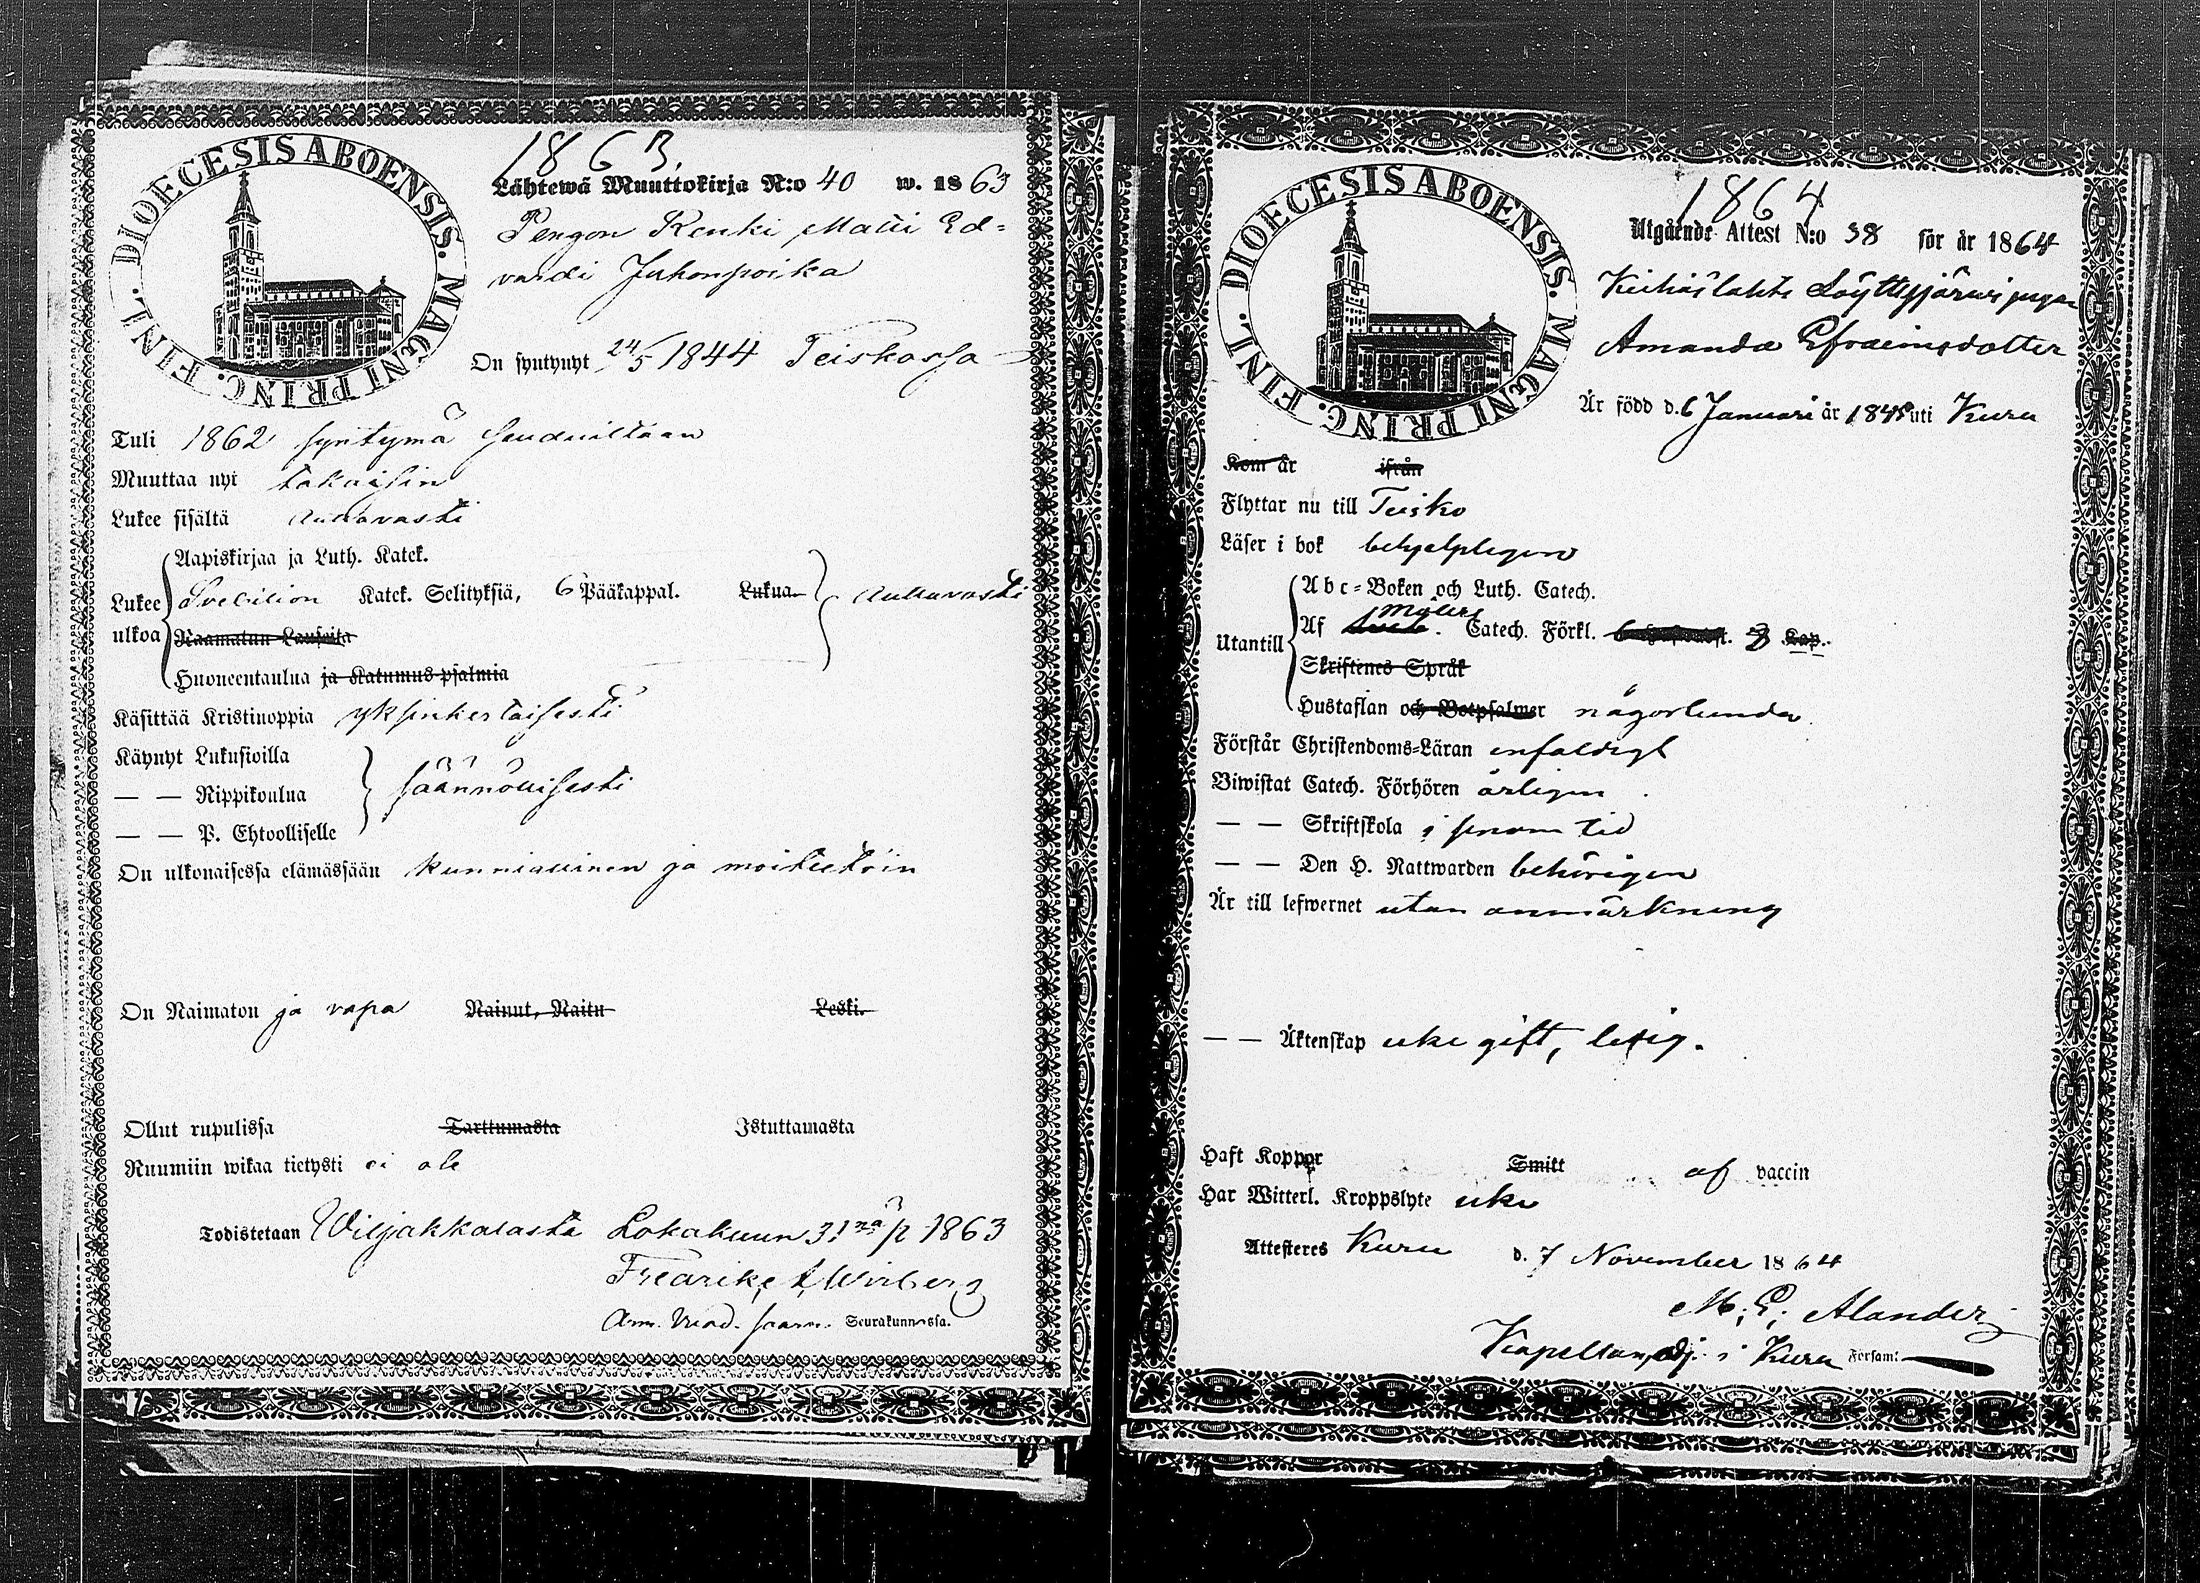 DIOECESIS ABOENSIS. MAGNI PRINC. FINL.
1863.
Lähtewä Muuttokirja N:o 40 w. 1863
Pengon Renki Matti Ed=
vardi Juhonpoika
On syntynyt 24/5 1844 Teiskossa
Tuli 1862 syntymä
Muuttaa nyt takaisin
Lukee sisältä auttavasti
Aapiskirjaa ja Luth. Katek.
Lukee ulkoa Svebilion Katek. Selityksiä, 6 Pääkappal. Lukua. auttavasti
Raamatun Lauseita
Huoneentaulua ja Katumus-psalmia
Käsittää Kristinoppia yksinkertaisesti
Käynyt Lukusioilla
— — Rippikoulua säännöllisesti
— — P. Ehtoolliselle
On ulkonaisessa elämässään kunniallinen ja moiteetoin
On Naimaton ja vapa Nainut, Naitu Leski.
Ollut rupulissa Tarttumasta Istuttamasta
Ruumiin wikaa tietysti ei ole
Todistetaan Wiljakkalasta Lokakuun 31 nä p 1863
Fredrik Wirberg
Arm. Vuod. saarn. Seurakunnassa.
DIOECESIS ABOENSIS. MAGNI PRINC. FINL.
1864
Utgående Attest N:o 38 för år 1864
Keihäslahti Löyttyjärwi pigan
Amanda Efraimsdotter
Är född d. 6 Januari år 1845 uti Kuru
Kom år ifrån
Flyttar nu till Teisko
Läser i bok behjelpligen
Abc=Boken och Luth. Catech.
Utantill Af Catech. Förkl. Kap.
Skriftenes Språk
Hustaflan och Botpsalmer någorlunda.
Förstår Christendoms=Läran enfaldigt
Biwistat Catech. Förhören årligen
— — Skriftskola i sinom tid
— — Den H. Nattwarden behörigen
Är till lefwernet utan anmärkning
— — Äktenskap icke gift, ledig.
Haft Koppor Smitt af vaccin
Har Witterl. Kroppslyte icke
Attesteres Kuru d. 7 November 1864
M. E. Alander
Kapellans adj. i Kuru Församl